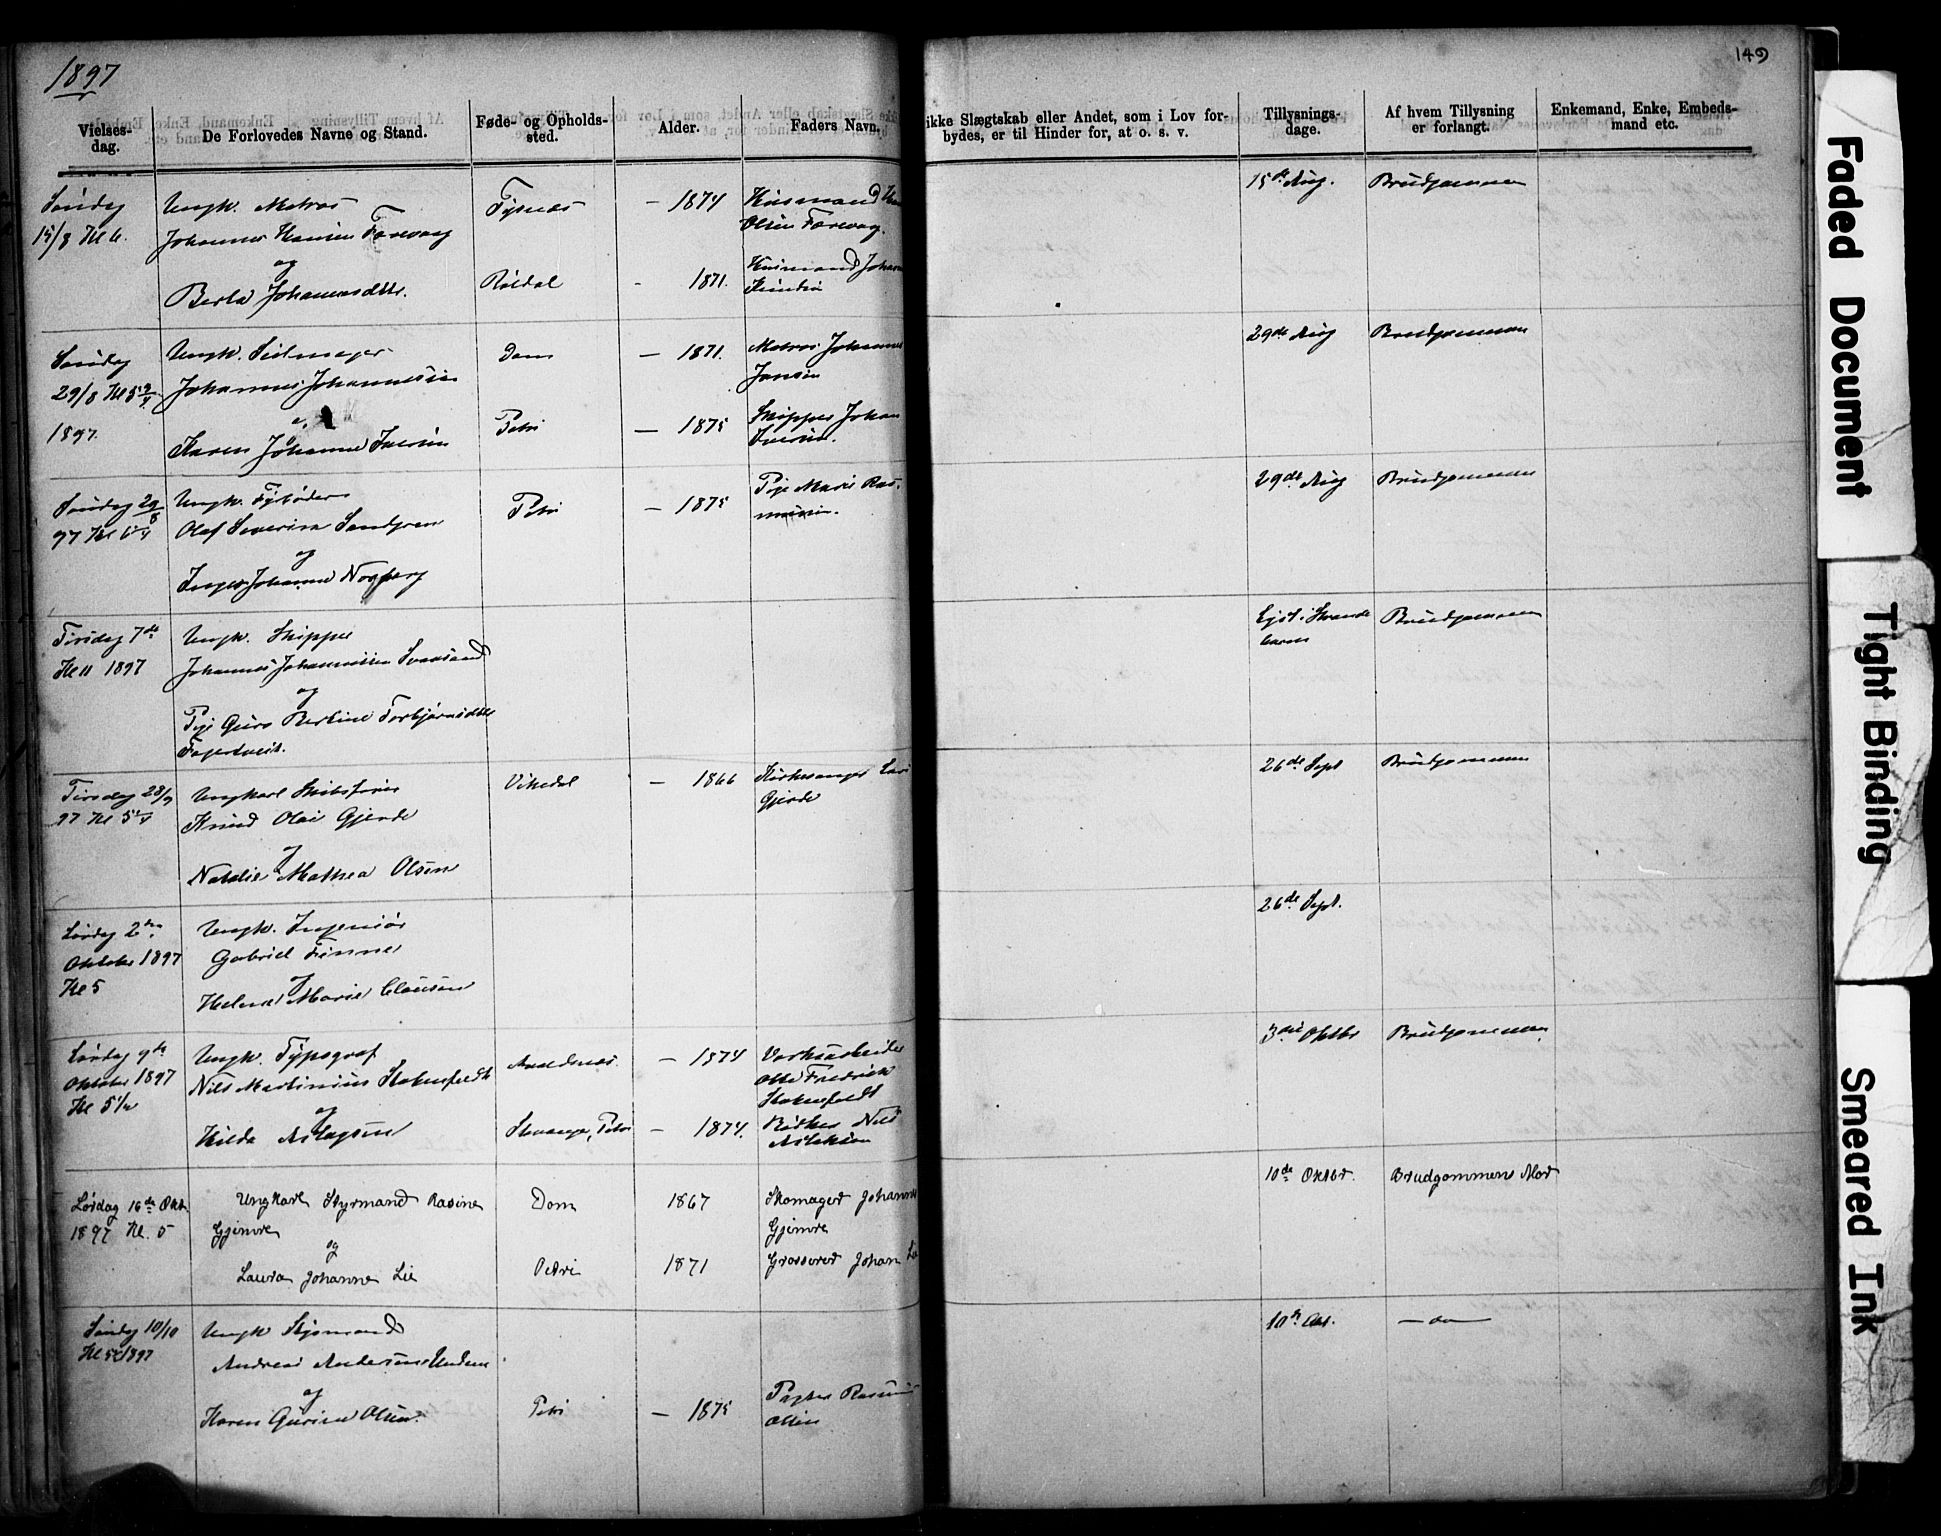 1897
149
Vielses-
dag.
De Forlovedes Navne og Stand.
Føde- og Opholds-
sted.
Alder.
Faders Navn.
ikke Slægtskab eller Andet, som i Lov for-
bydes, er til Hinder for, at o. s. v.
Tillysnings-
dage.
Af hvem Tillysning
er forlangt.
Enkemand, Enke, Embeds-
mand etc.
Søndag
15/8 Kl 6.
Ungk. Matros
Johannes Hansen Farevaag
og
Berta Johannesdtr.
Tysnæs
Røldal
— 1874
- 1871.
Husmand
Olsen Farevaag.
Husmand Johan
15de Aug.
Brudgommen
Søndag
29/8 Kl 5
1897
Ungk. Seilmager
Johannes Johannessen
og
Karen Johanne Iversen
Dom
Petri
— 1871.
— 1875
Matros Johannes
Jansen
Skipper Johan
Iversen.
29de Aug
Brudgommen
Søndag 29/8
97 Kl 6 1/4
Ungk. Fyrbøder
Olaf Severin Sandgren
og
Inger Johanne Nogberg
Petri
— 1875
Pige Marie Ras-
mussen.
29de Aug
Brudgommen
Tirsdag 7de
Kl 11 1897
Ungk. Skipper
Johannes Johannessen
og
Pige Guro Bertine Torbjørnsdtr
Lyst i Strande
barm
Brudgommen
Tirsdag 28/9
97 Kl 5 1/4
Ungkarl Skibsfører
Knud Olai Gjerde
og
Natalie Mathea Olsen
Vikedal
— 1866
Kirkesanger
Gjerde
26de Sept
Brudgommen
Lørdag 2den
Oktober 1897
Kl 5
Ungk. Ingeniør
Gabriel Finne
og
Helene Marie Clausen
26de Sept.
Lørdag 9de
Oktober 1897
Kl 5 1/2
Ungk. Typograf
Nils Martinius Stokenfeldt
og
Hilda Aslagsen
Stavanger, Petri
— 1874
— 1874.
Værksarbeider
Otto Fredrik
Stokenfeldt
Bødker Nils
Aslaksen
3die Oktbr
Brudgommen
Lørdag 16de Okt.
1897 Kl. 5
Ungkarl Styrmand Rasine
Gjemre
og
Laura Johanne Lie
Dom
Petri
1867
1871
Skomager Johannes
Gjemre
Grosserer Johan
10de Oktbr.
Brudgommens Mor
Søndag 10/10
Kl 5 1/2 1897
Ungk Styrmand
Andreas Andersen
og
Karen Gurine Olsen.
Petri
— 1875
Rasmus
Olsen
10de Okt.
— do —
Faded Document
Tight Binding
Smeared Ink